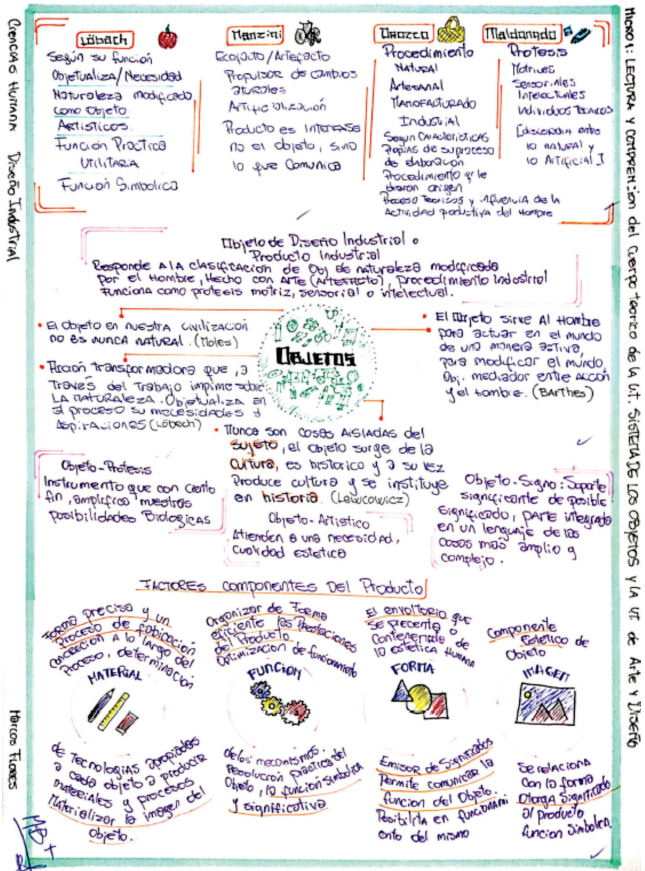 MICRO 1: LECTURA Y COMPRENSIÓN del Cuerpo teorico de la U.T. SISTEMA DE LOS OBJETOS Y LA UT de Arte y Diseño
Ciencias Humana Diseño Industrial
Marcos Flores
Löbach
Según su función
Objetualiza/Necesidad
Naturaleza modificada
como Objeto
Artisticos.
Función Practica
UTILITARIA
Función Simbolica
Manzini
Ecofacto/Artefacto
Propulsor de cambios
Producto es INTERFASE
no el objeto, sino
lo que comunica
Orozco
Procedimiento
Natural
Artesanal
Manofacturado
Industrial
Segun Caracteristicas
Propias de su proceso
de elaboración
Procedimiento q' le
dieron origen
Proceso Tecnicos y influencia de la
Actividad productiva del Hombre
Maldonado
Protesis
Motrices
Sensoriales
Intelectuales
Individuos Tecnicos
entre
lo natural y
lo Artificial
Objeto de Diseño Industrial o
Producto Industrial
Responde A LA clasificacion de Obj de naturaleza modificada
por el Hombre, Hecho con ARTE (Artefacto), procedimiento Industrial
Funciona como protesis motriz, sensorial o intelectual.
OBJETOS
• El Objeto en nuestra civilización
no es nunca natural. (Moles)
• Accion transformadora que, a
Través del Trabajo imprime sobre
LA naturaleza. Objetualiza en
si proceso su necesidades y
Aspiraciones (Löbach)
• El Objeto sirve Al Hombre
para actuar en el mundo
de una manera activa,
para modificar el mundo,
Obj. mediador entre Acción
y el hombre. (Barthes)
• Nunca son cosas AISLADAS del
sujeto, el objeto surge de la
cultura, es historico y a su vez
Produce cultura y se instituye
en historia. (Lewcowicz)
Objeto-Protesis
Instrumento que con cierto
fin, amplifica nuestras
posibilidades Biologicas
Objeto-Artistico
Atienden a una necesidad,
Cualidad estetica
Objeto-Signo: Soporte
significante de posible
significado, parte integrada
en un lenguaje de las
cosas mas amplio y
complejo.
FACTORES componentes DEL Producto
Forma precisa y un
Proceso de fabricación
Concreción a lo largo del
Proceso, determinación
MATERIAL
de Tecnologias apropiadas
a cada objeto a producir
materiales y procesos
Materializar la imagen del
Objeto.
Organizar de Forma
eficiente las Prestaciones
del Producto.
Optimización de funcionamiento
FUNCION
de los mecanismos.
Resolución practica del
Objeto, la función simbolica
y significativa
El envoltorio que
se presenta o
la estetica Humana
FORMA
Emisor de Significados
Permite comunicar la
funcion del Objeto.
Posibilita en funcionami
ento del mismo
Componente
Estetico de
Objeto
IMAGEN
Se relaciona
con la forma
Otorga Significado
al producto
funcion Simbolica